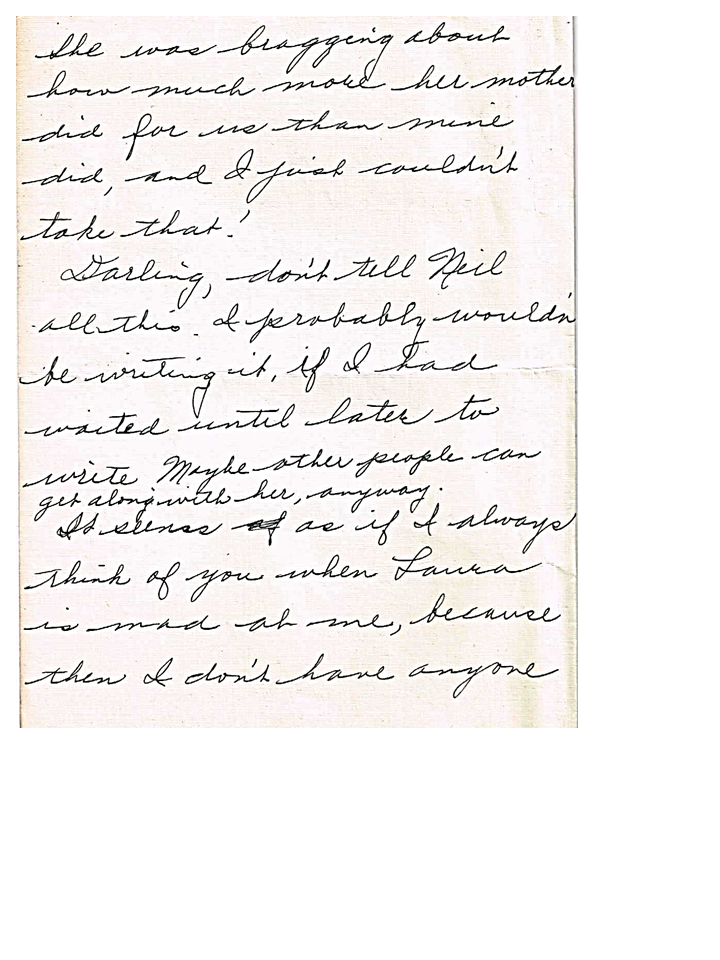 She was bragging about
how much more her mother
did for us than mine
did, and I just couldn't
take that!
Darling, don't tell Neil
all this. I probably wouldn
be writing it, if I had
waited until later to
write. Maybe other people can
get along with her, anyway.
It seems as if I always
think of you when Laura
is mad at me, because
then I don't have anyone